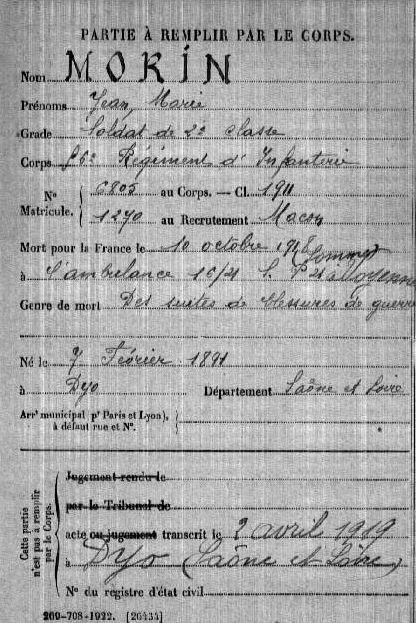 PARTIE À REMPLIR PAR LE CORPS.
Nom MORIN
Prénoms Jean Marie
Grade Soldat de 2e classe
Corps 56e Régiment d'Infanterie
No 6805 au Corps. — Cl. 1911
Matricule. 1270 au Recrutement Macon
Mort pour la France le 10 octobre 1918 (Somme)
à l'ambulance 16/21 S. P.
Genre de mort Des suites de blessures de guerre
Né le 7 Février 1891
à Dyo Département Saône et Loire
Arrt municipal pr Paris et Lyon),
à défaut rue et No.
Cette partie
n'est pas à remplir
par le Corps.
Jugement rendu le
par le Tribunal de
acte ou jugement transcrit le 2 avril 1919
à Dyo (Saône et Loire)
No du registre d'état civil
269-708-1922. [26434]